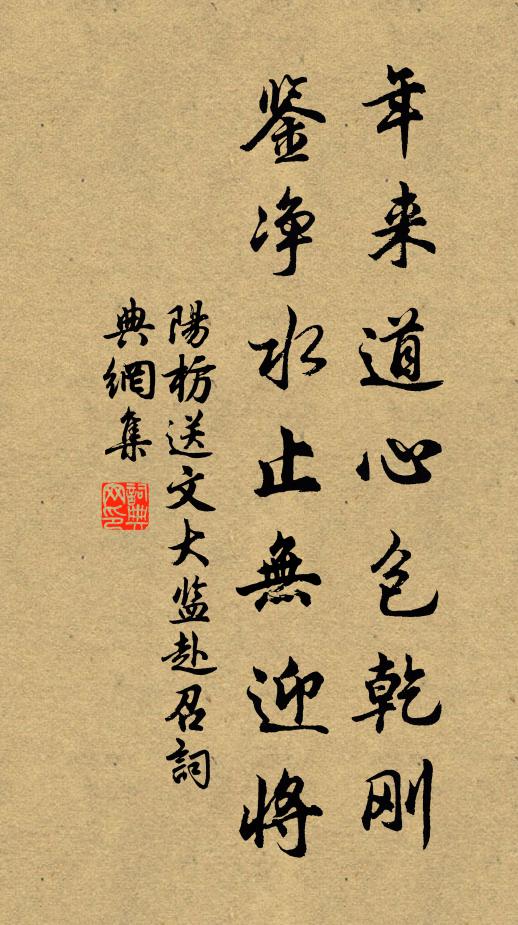 年来道心包乾刚
鉴净水止無迎将
陽枋送文大监赴召詞
典網集
詞典
网印